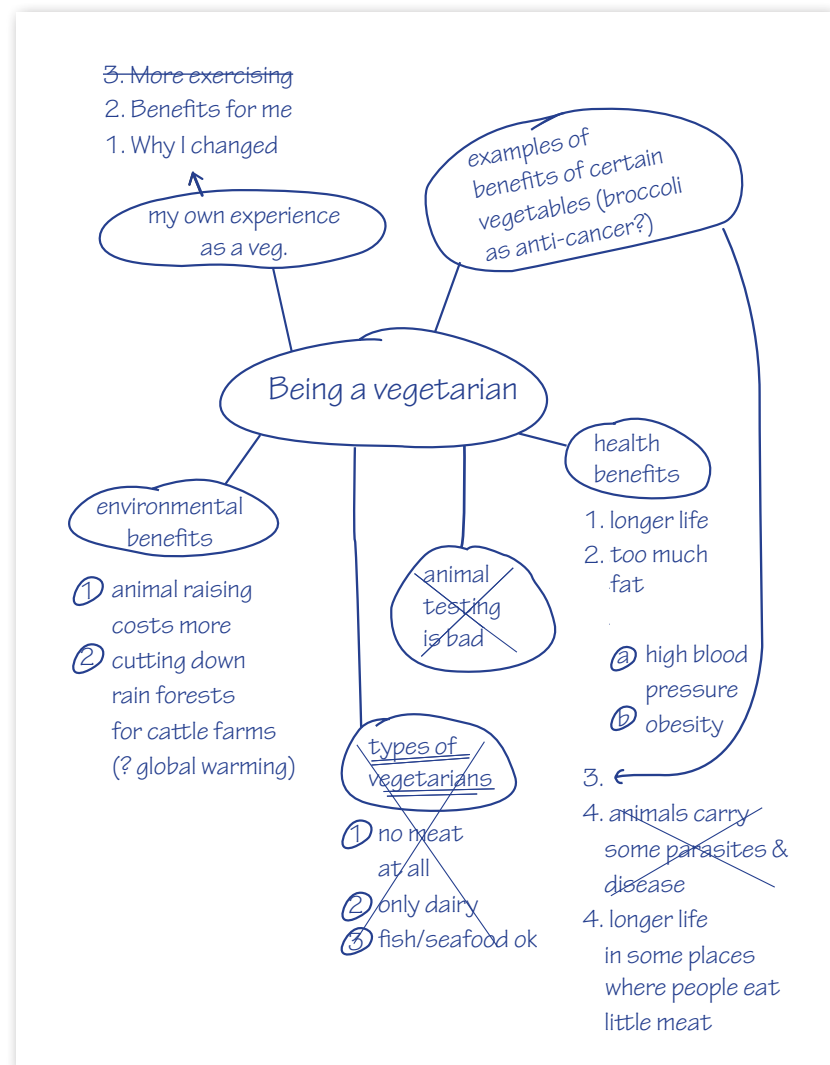 3. More exercising
2. Benefits for me
1. Why I changed
my own experience
as a veg.
examples of
benefits of certain
vegetables (broccoli
as anti-cancer?)
Being a vegetarian
environmental
benefits
1 animal raising
costs more
2 cutting down
rain forests
for cattle farms
(? global warming)
animal
testing
is bad
types of
vegetarians
1 no meat
at all
2 only dairy
3 fish/seafood ok
health
benefits
1. longer life
2. too much
fat
a high blood
pressure
b obesity
3.
4. animals carry
some parasites &
disease
4. longer life
in some places
where people eat
little meat